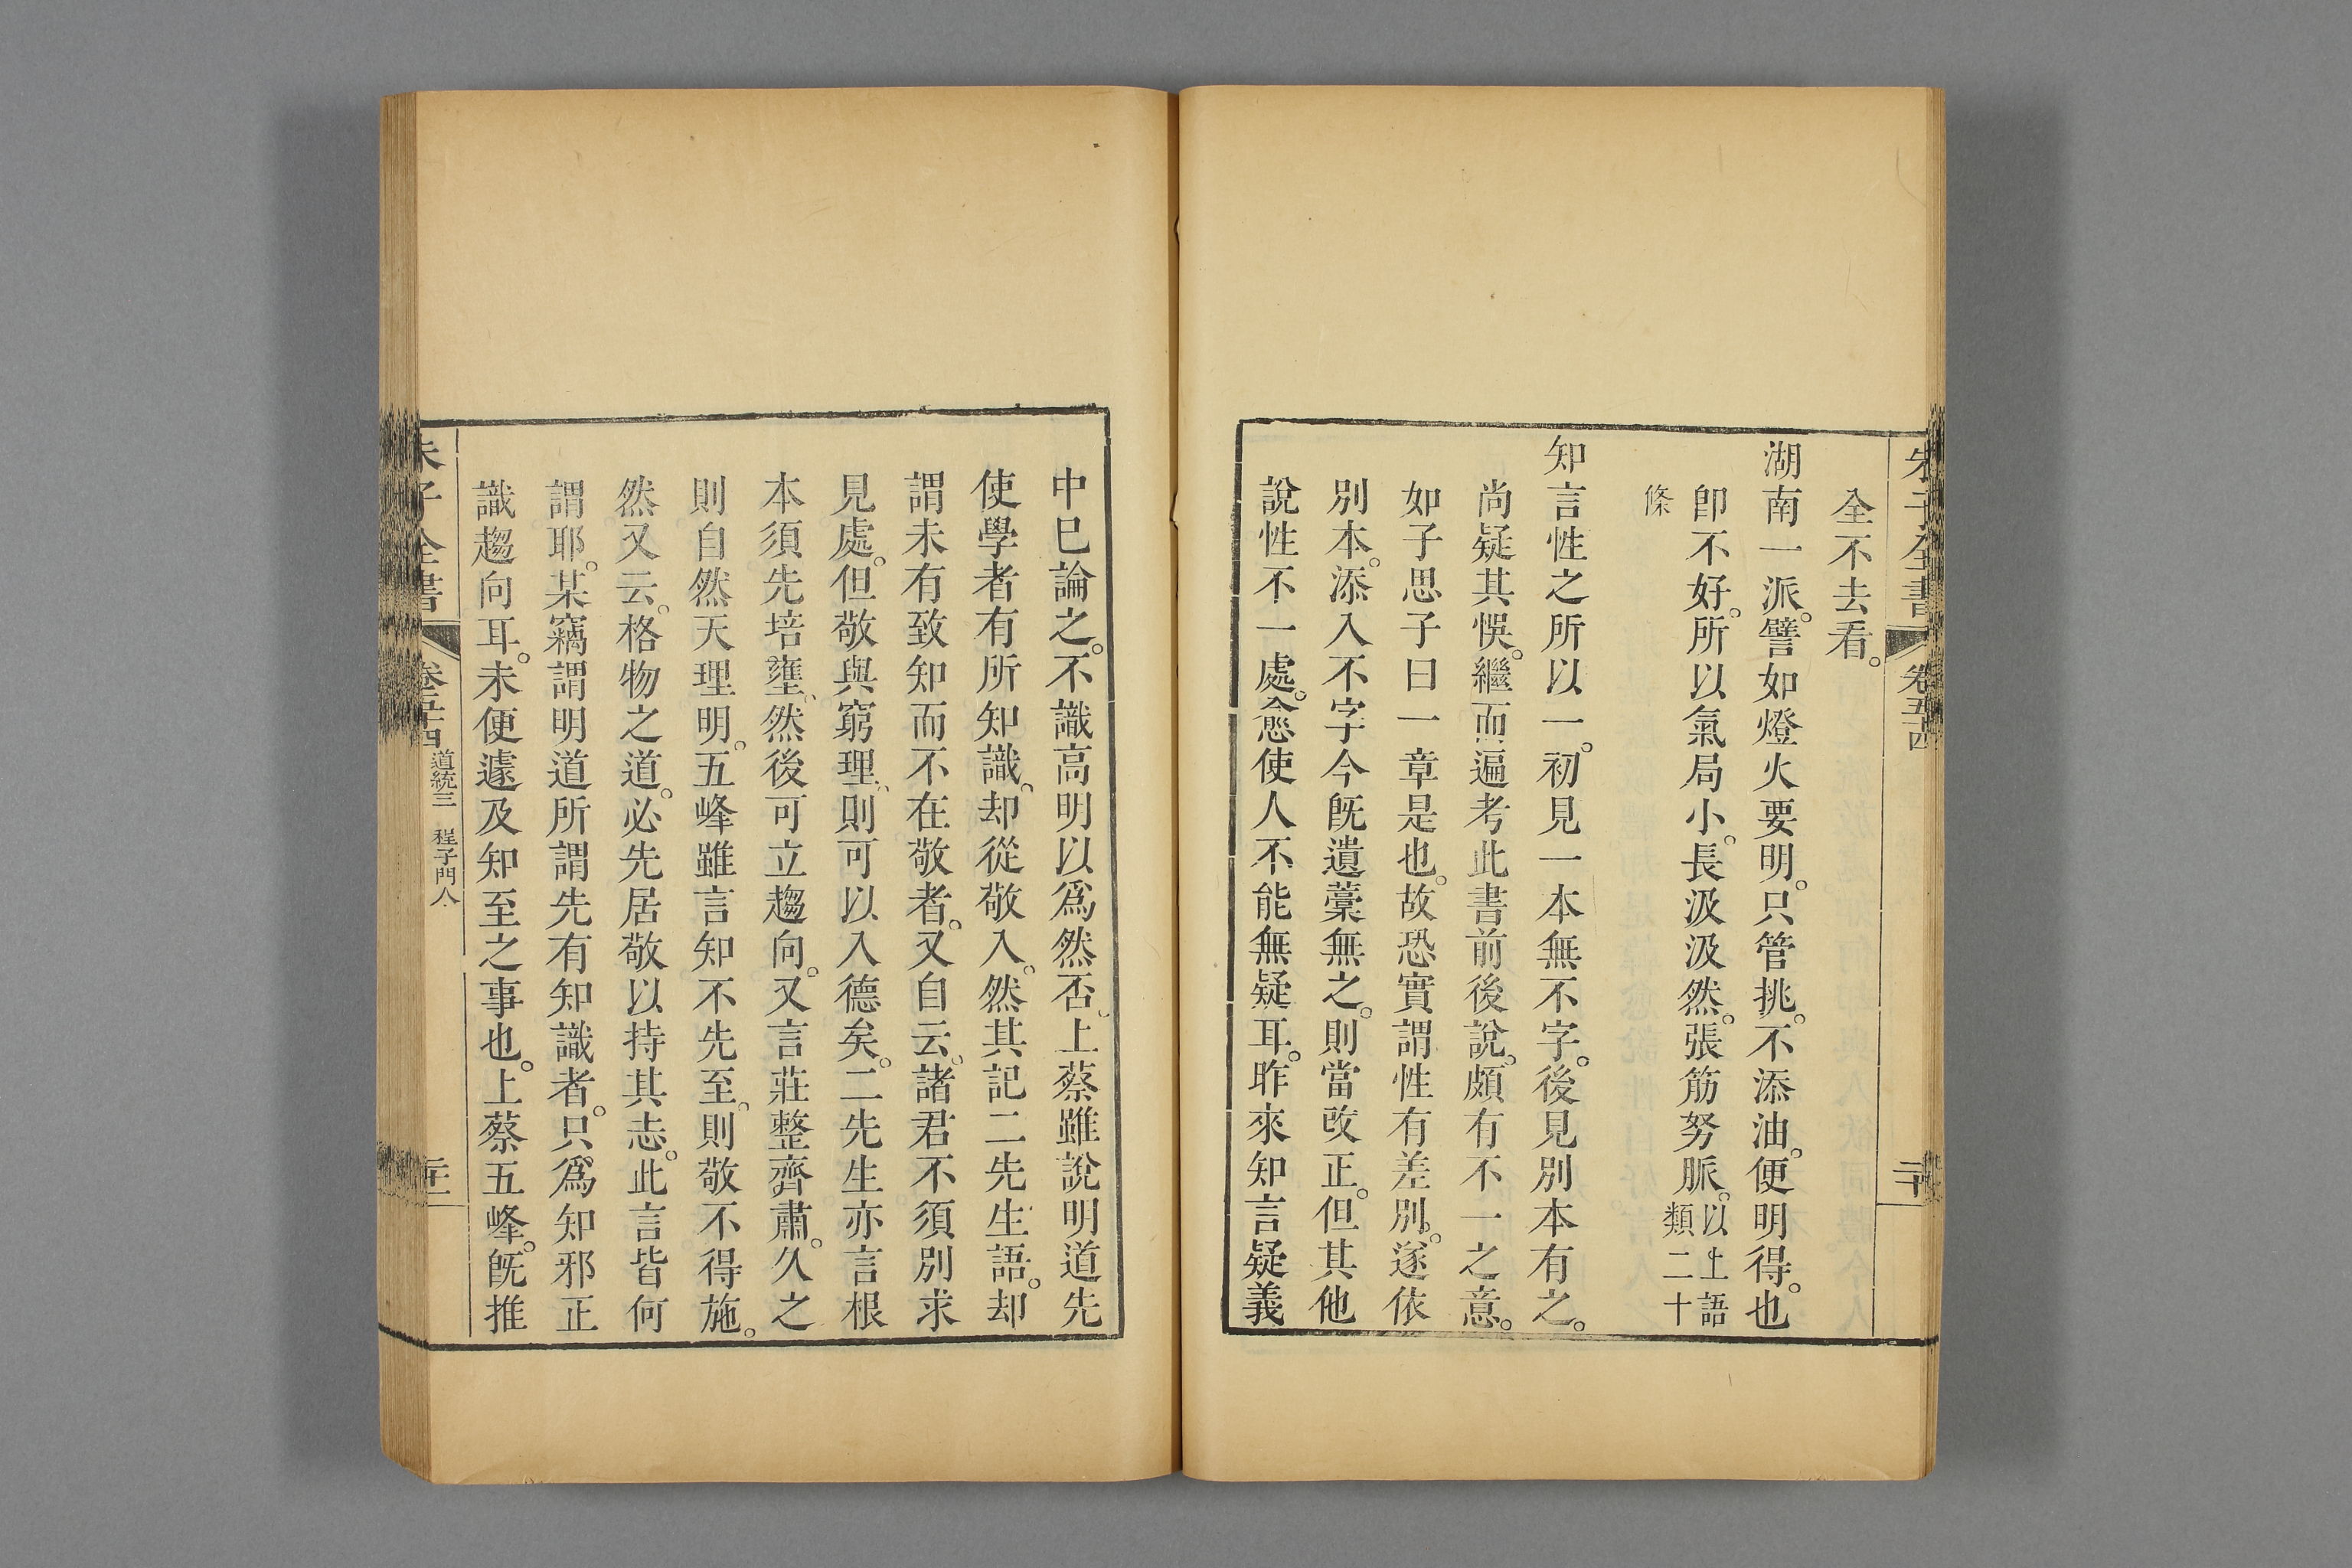 朱子全書 卷五十四 二十
全不去看。
湖南一派。譬如燈火要明。只管挑。不添油。便明得。也
卽不好。所以氣局小。長汲汲然。張筋努脈。以上語類二十
條
知言性之所以一。初見一本無不字。後見別本有之。
尚疑其悞。繼而遍考此書前後說。頗有不一之意。
如子思子曰一章是也。故恐實謂性有差別。遂依
別本。添入不字今旣遺藁無之。則當改正。但其他
說性不一處。愈使人不能無疑耳。昨來知言疑義
中巳論之。不識高明以爲然否。上蔡雖說明道先
使學者有所知識。却從敬入。然其記二先生語。却
謂未有致知而不在敬者。又自云。諸君不須別求
見處。但敬與窮理。則可以入德矣。二先生亦言根
本須先培壅、然後可立趨向。又言莊整齊肅。久之
則自然天理明。五峰雖言知不先至。則敬不得施。
然又云。格物之道。必先居敬以持其志。此言皆何
謂耶。某竊謂明道所謂先有知識者。只爲知邪正
識趨向耳。未便遽及知至之事也。上蔡五峰。旣推
朱子全書 卷五十四 道統三 程子門人 二十一